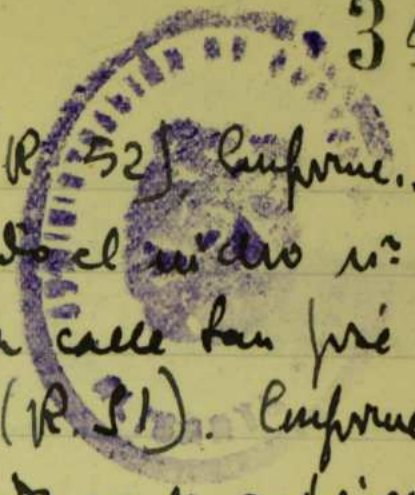 34
(R. 52). Conforme.
el nicho nº
calle San José
(R. 51). Conforme